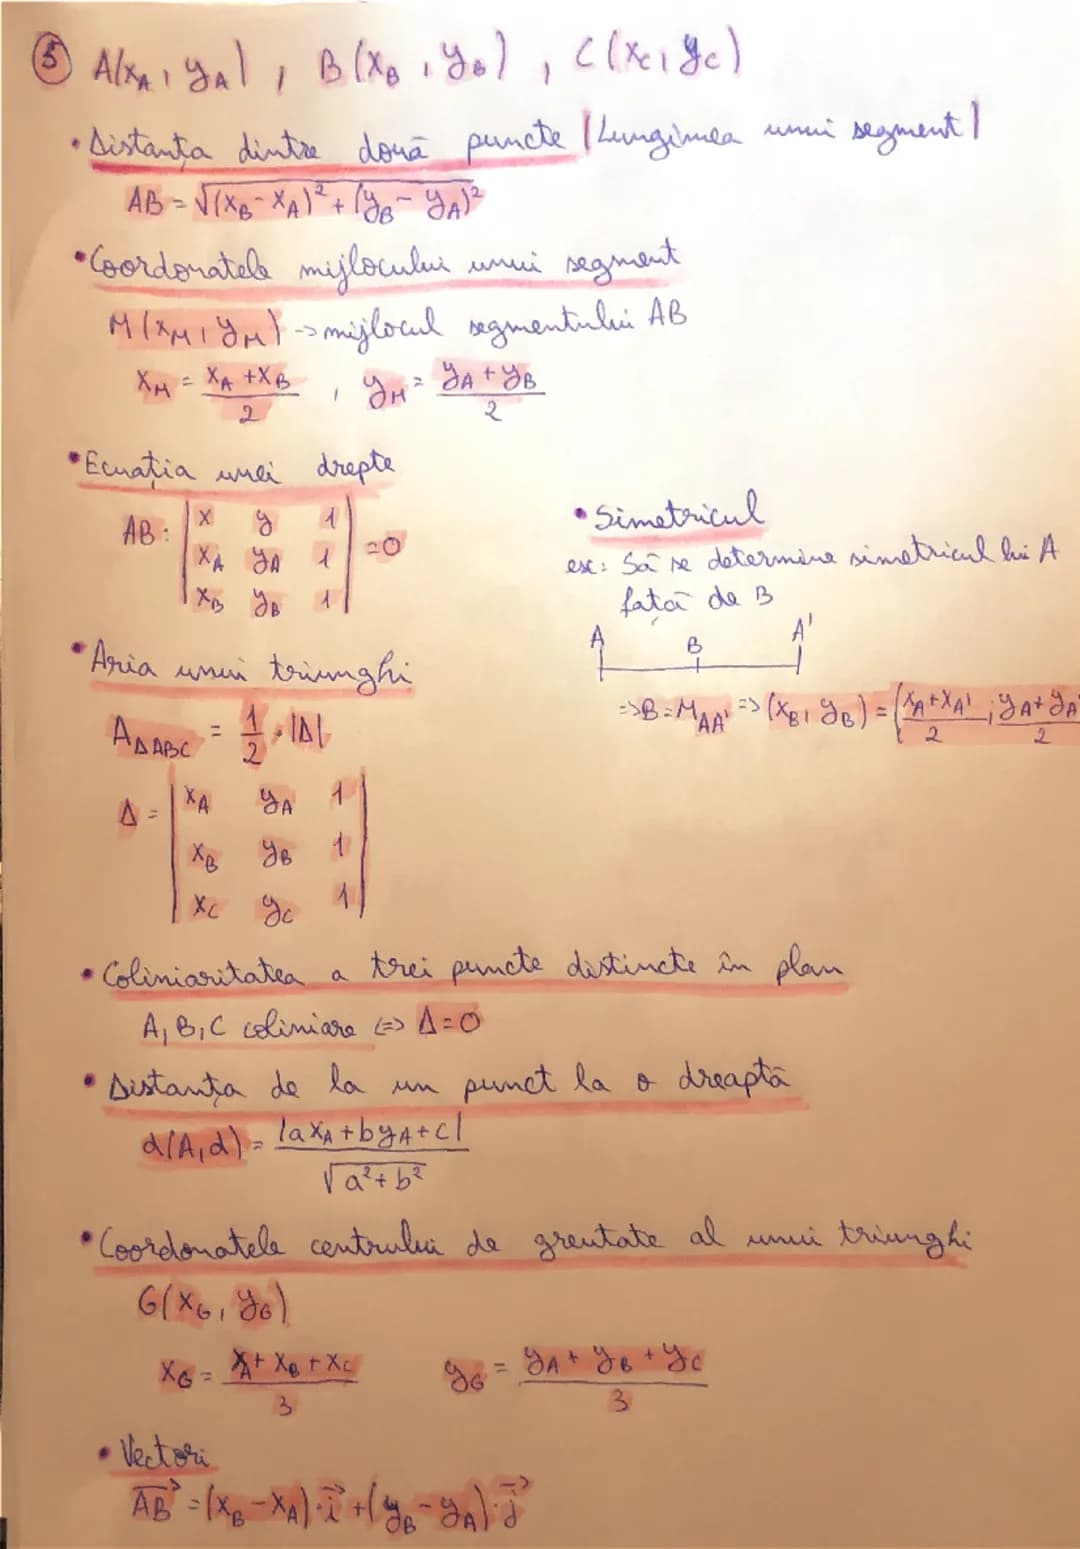 5 A(xA, yA), B(xB, yB), C(xC, yC)
• Distanța dintre două puncte (Lungimea unui segment)
AB = √(xB - xA)² + (yB - yA)²
• Coordonatele mijlocului unui segment
M(xM, yM) -> mijlocul segmentului AB
xM = xA + xB / 2 , yM = yA + yB / 2
• Ecuația unei drepte
AB: | x y 1 |
| xA yA 1 | = 0
| xB yB 1 |
• Simetricul
ex: Să se determine simetricul lui A
față de B
A B A'
=> B = MAA' => (xB, yB) = (xA + xA' / 2 ; yA + yA' / 2
• Aria unui triunghi
A∆ABC = 1/2 · |∆|
∆ = | xA yA 1 |
| xB yB 1 |
| xC yC 1 |
• Coliniaritatea a trei puncte distincte în plan
A, B, C coliniare <=> ∆ = 0
• Distanța de la un punct la o dreaptă
d(A, d) = |axA + byA + c| / √a² + b²
• Coordonatele centrului de greutate al unui triunghi
G(xG, yG)
xG = xA + xB + xC / 3 yG = yA + yB + yC / 3
• Vectori
AB→ = (xB - xA) · i→ + (yB - yA) · j→